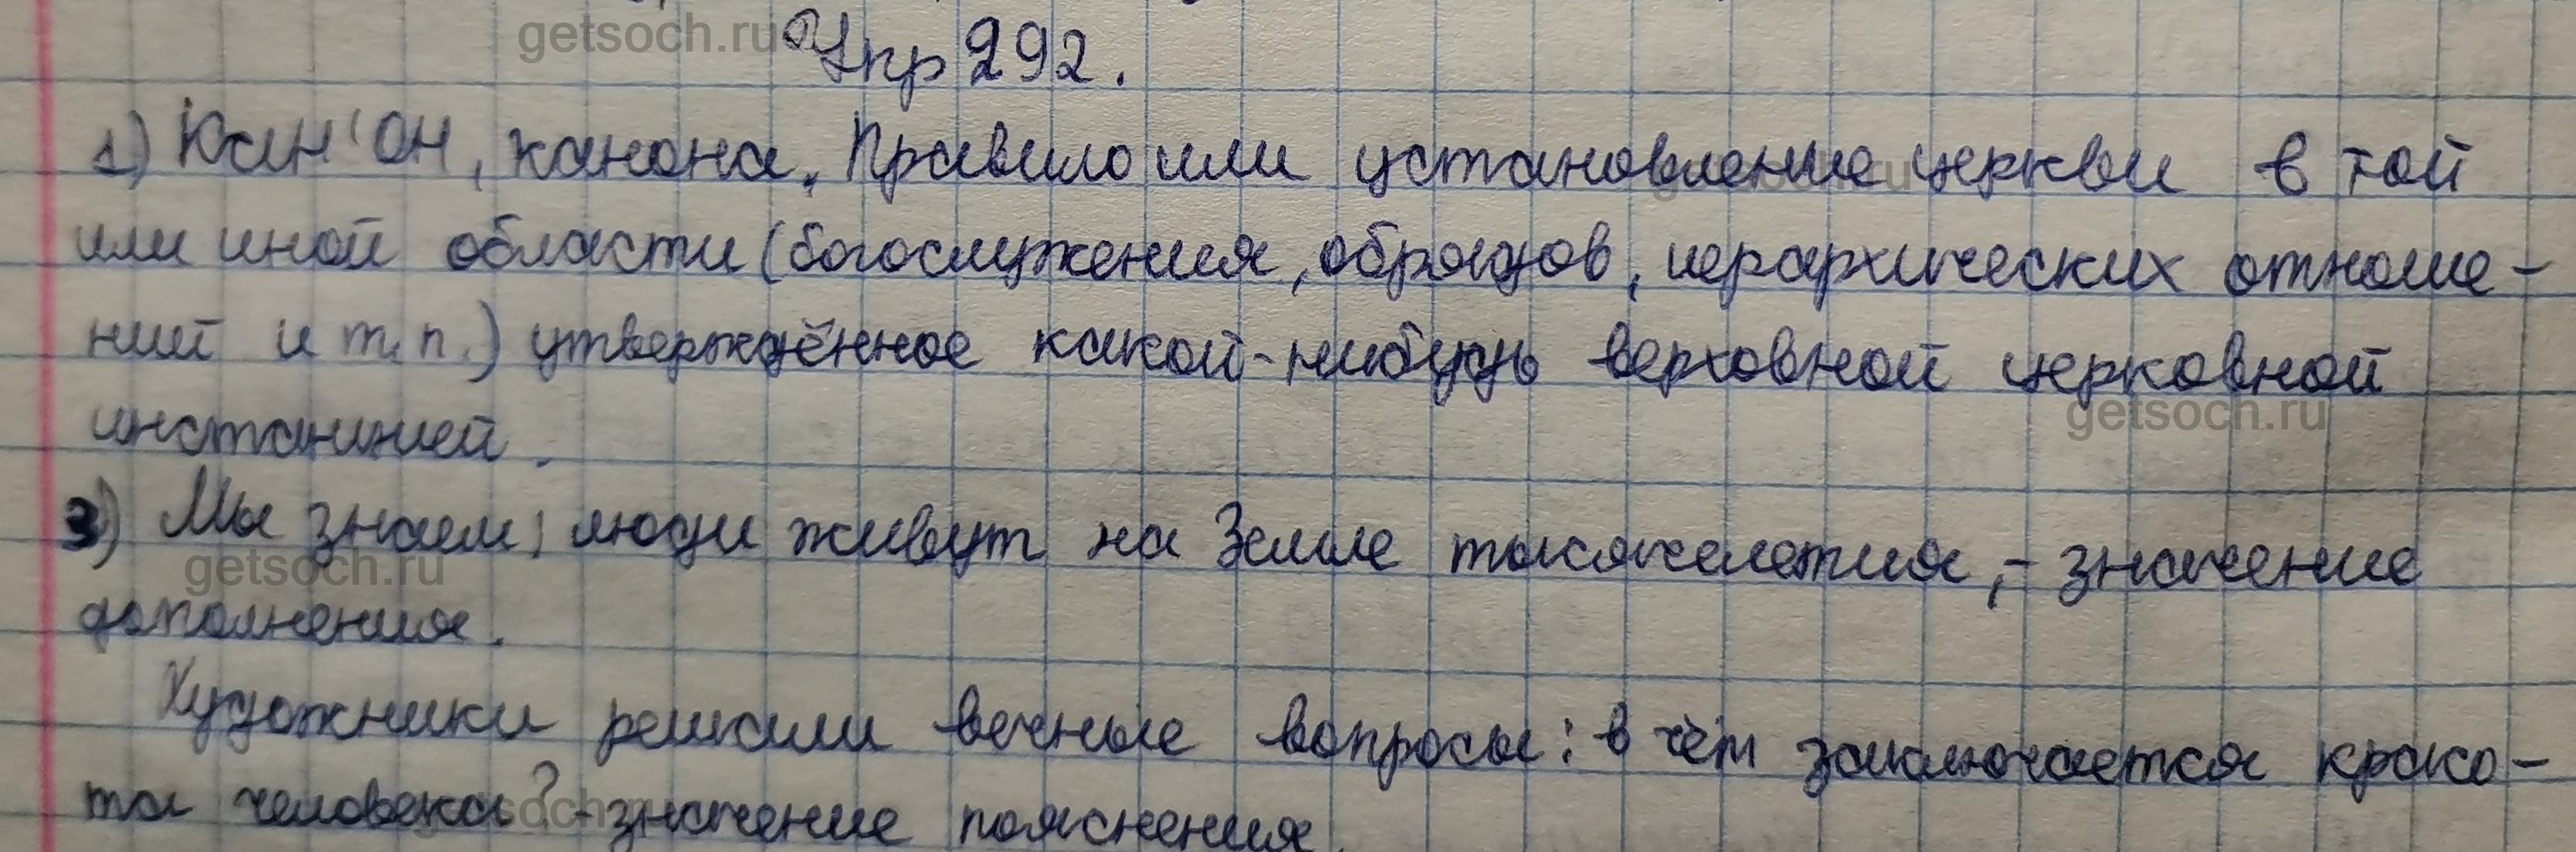 getsoch.ru
Упр 292.
1) Кан'Он, канона. Правило или установление церкви в той
или иной области (богослужения, обрядов, иерархических отноше-
ний и т.п.) утверждённое какой-нибудь верховной церковной
getsoch.ru
инстанцией.
3) Мы знаем: люди живут на Земле тысячелетия, - значение
getsoch.ru
дополнения.
Художники решали вечные вопросы: в чём заключается красо-
та человека? - значение пояснения.